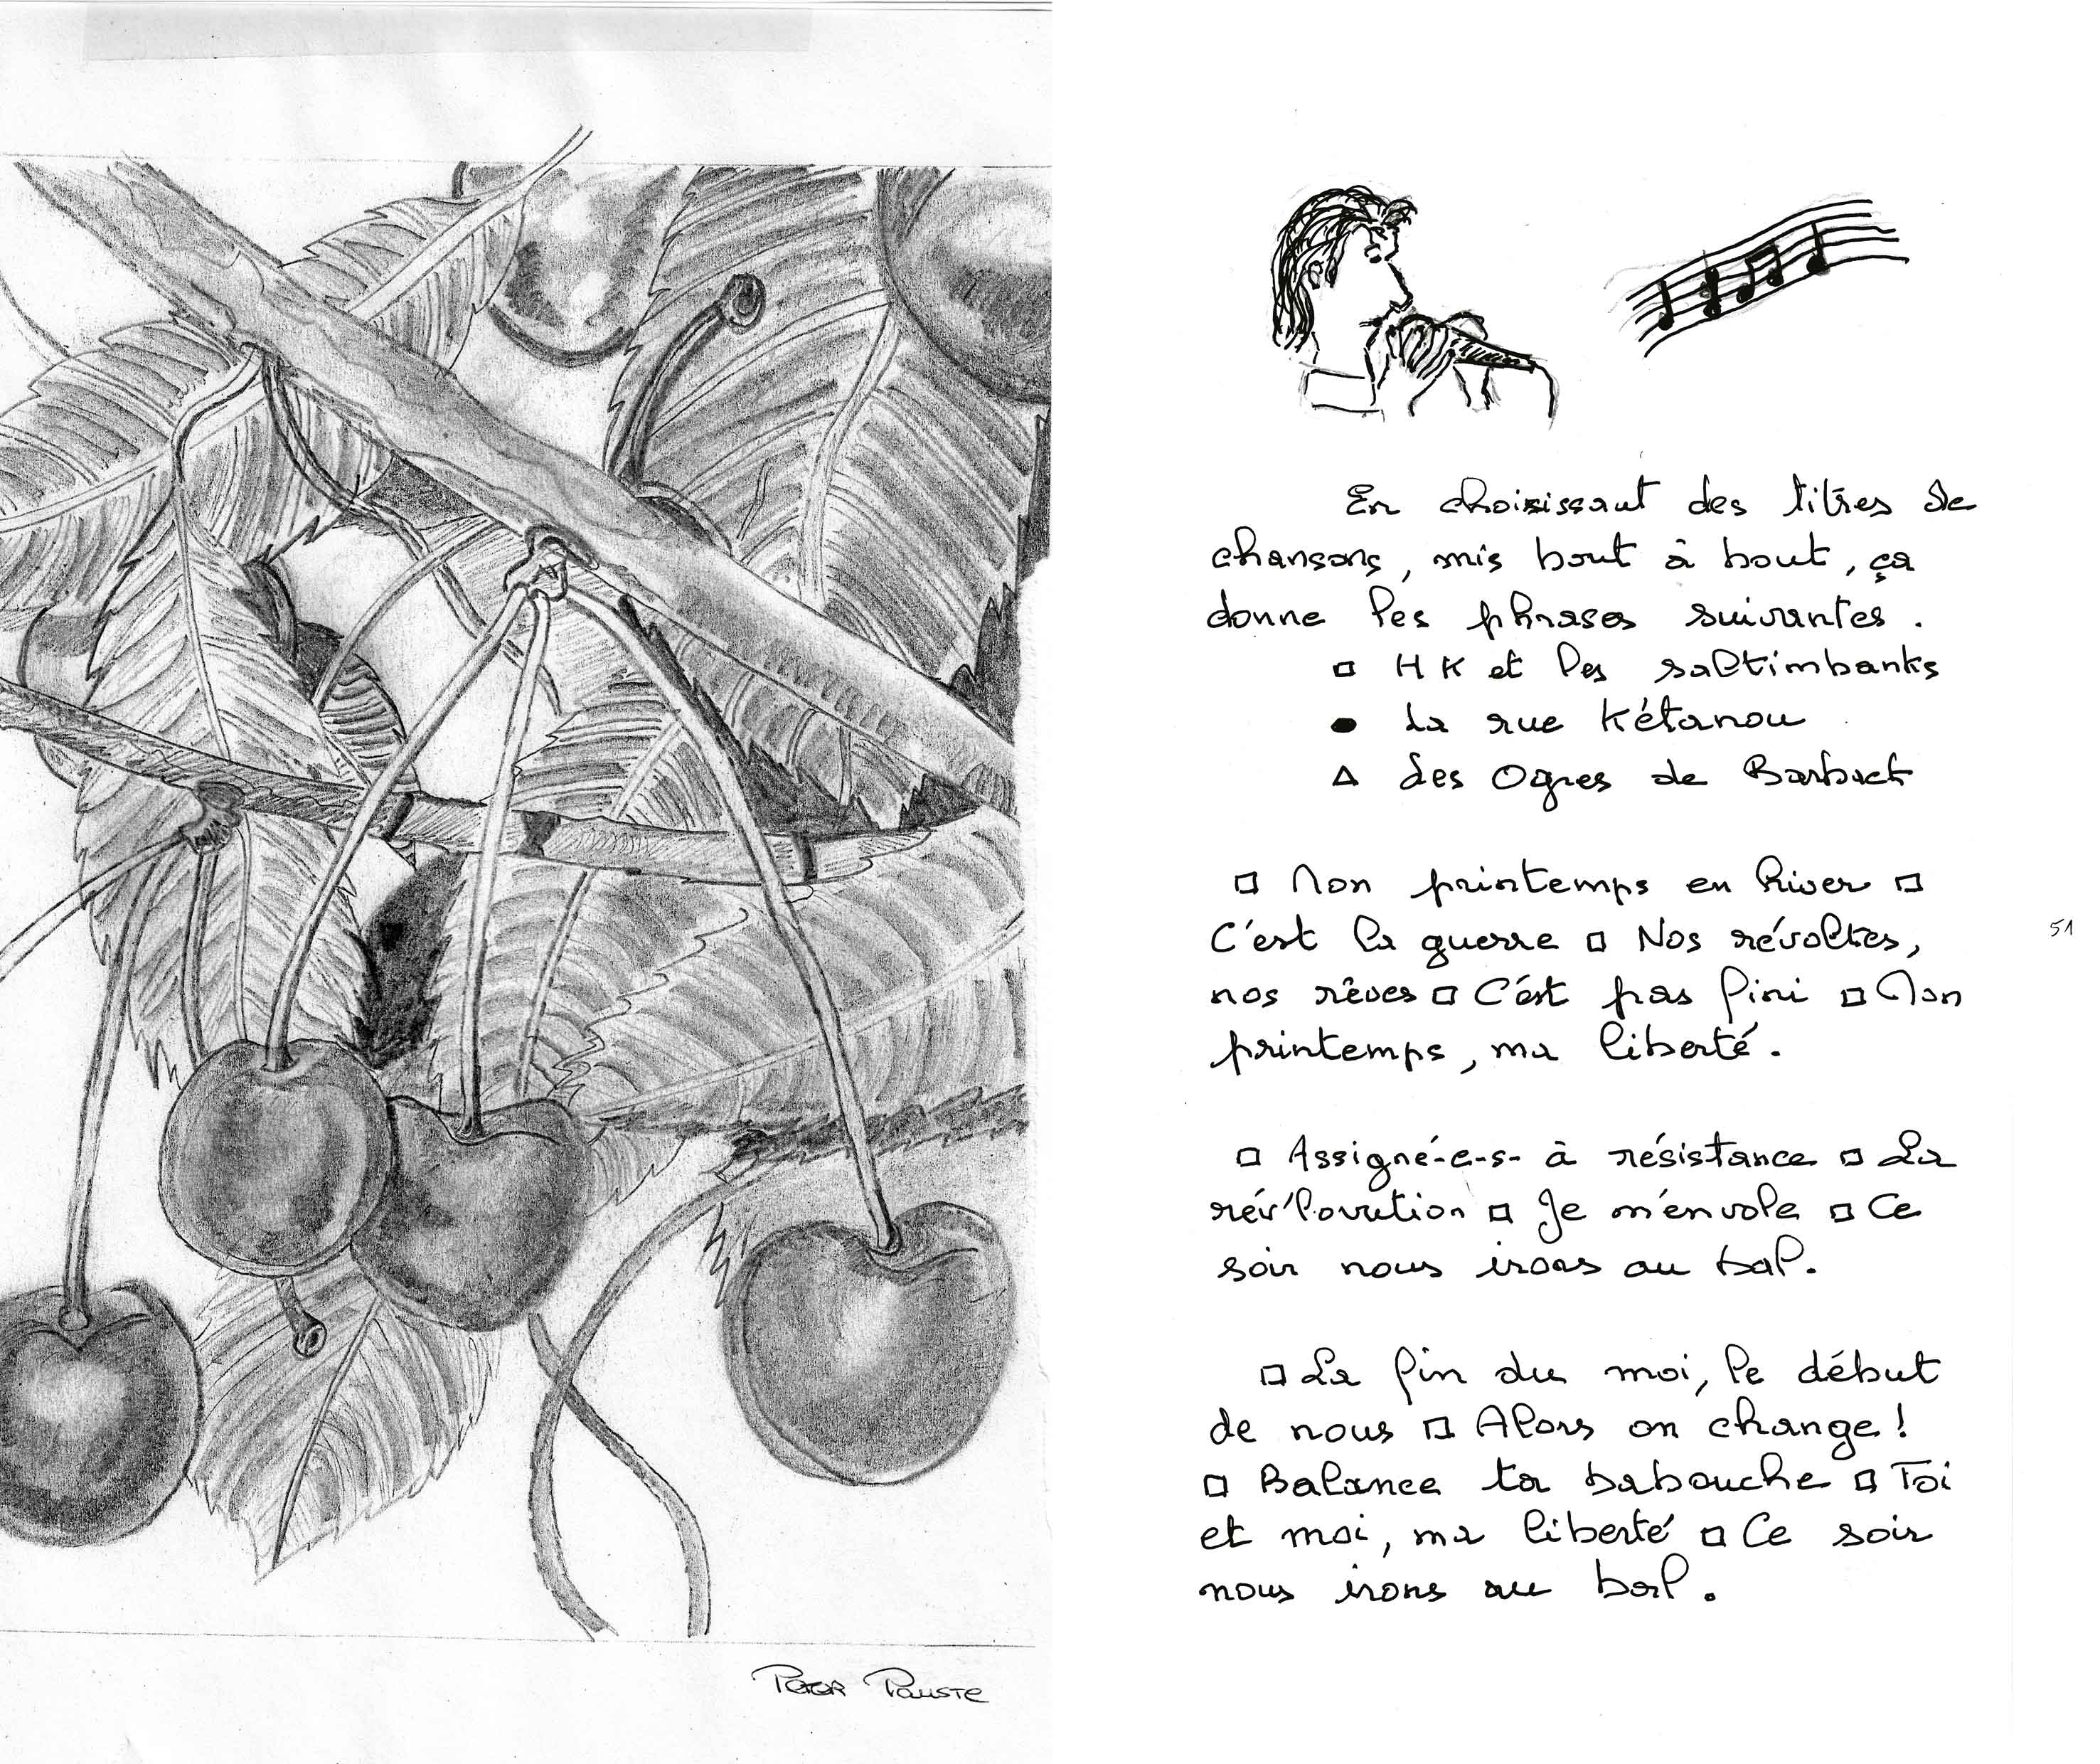 Peter Pauste
En choisissant des titres de
chansons, mis bout à bout, ça
donne les phrases suivantes.
□ HK et les saltimbanks
● La rue Kétanou
△ Les Ogres de Barback
□ Mon printemps en hiver □
C'est la guerre □ Nos révoltes,
nos rêves □ C'est pas fini □ Mon
printemps, ma liberté.
□ Assigné-e-s- à résistance □ La
rév'lovution □ Je m'envole □ Ce
soir nous irons au bal.
□ La fin du moi, le début
de nous □ Alors on change !
□ Balance ta babouche □ Toi
et moi, ma liberté □ Ce soir
nous irons au bal.
51